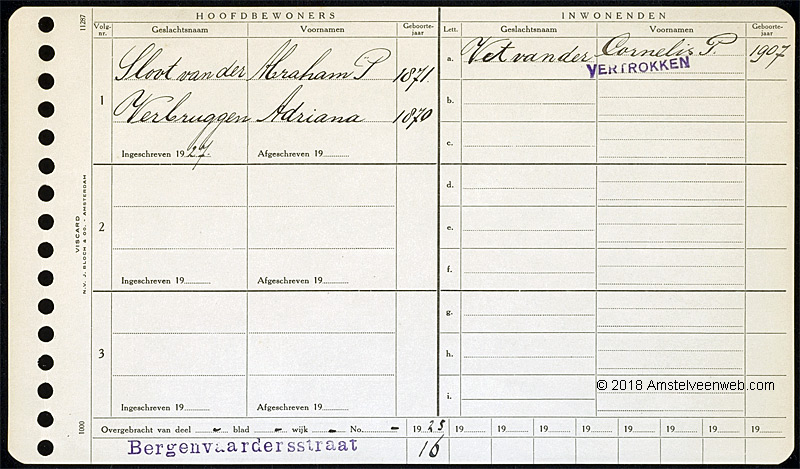 HOOFDBEWONERS INWONENDEN
11287 Volg-nr. Geslachtsnaam Voornamen Geboorte-jaar Lett. Geslachtsnaam Voornamen Geboorte-jaar
1 Sloot van der Abraham P 1871 a. Vet van der Cornelis P. 1907
VERTROKKEN
Verbruggen Adriana 1870 b.
Ingeschreven 1927 Afgeschreven 19 c.
d.
2 e.
Ingeschreven 19 Afgeschreven 19 f.
g.
3 h.
Ingeschreven 19 Afgeschreven 19 i.
VISCARD
N.V. J. BLOCH & CO. - AMSTERDAM
© 2018 Amstelveenweb.com
1000 Overgebracht van deel - blad - wijk - No. - 1925 19 19 19 19 19 19 19 19
Bergenvaardersstraat 16